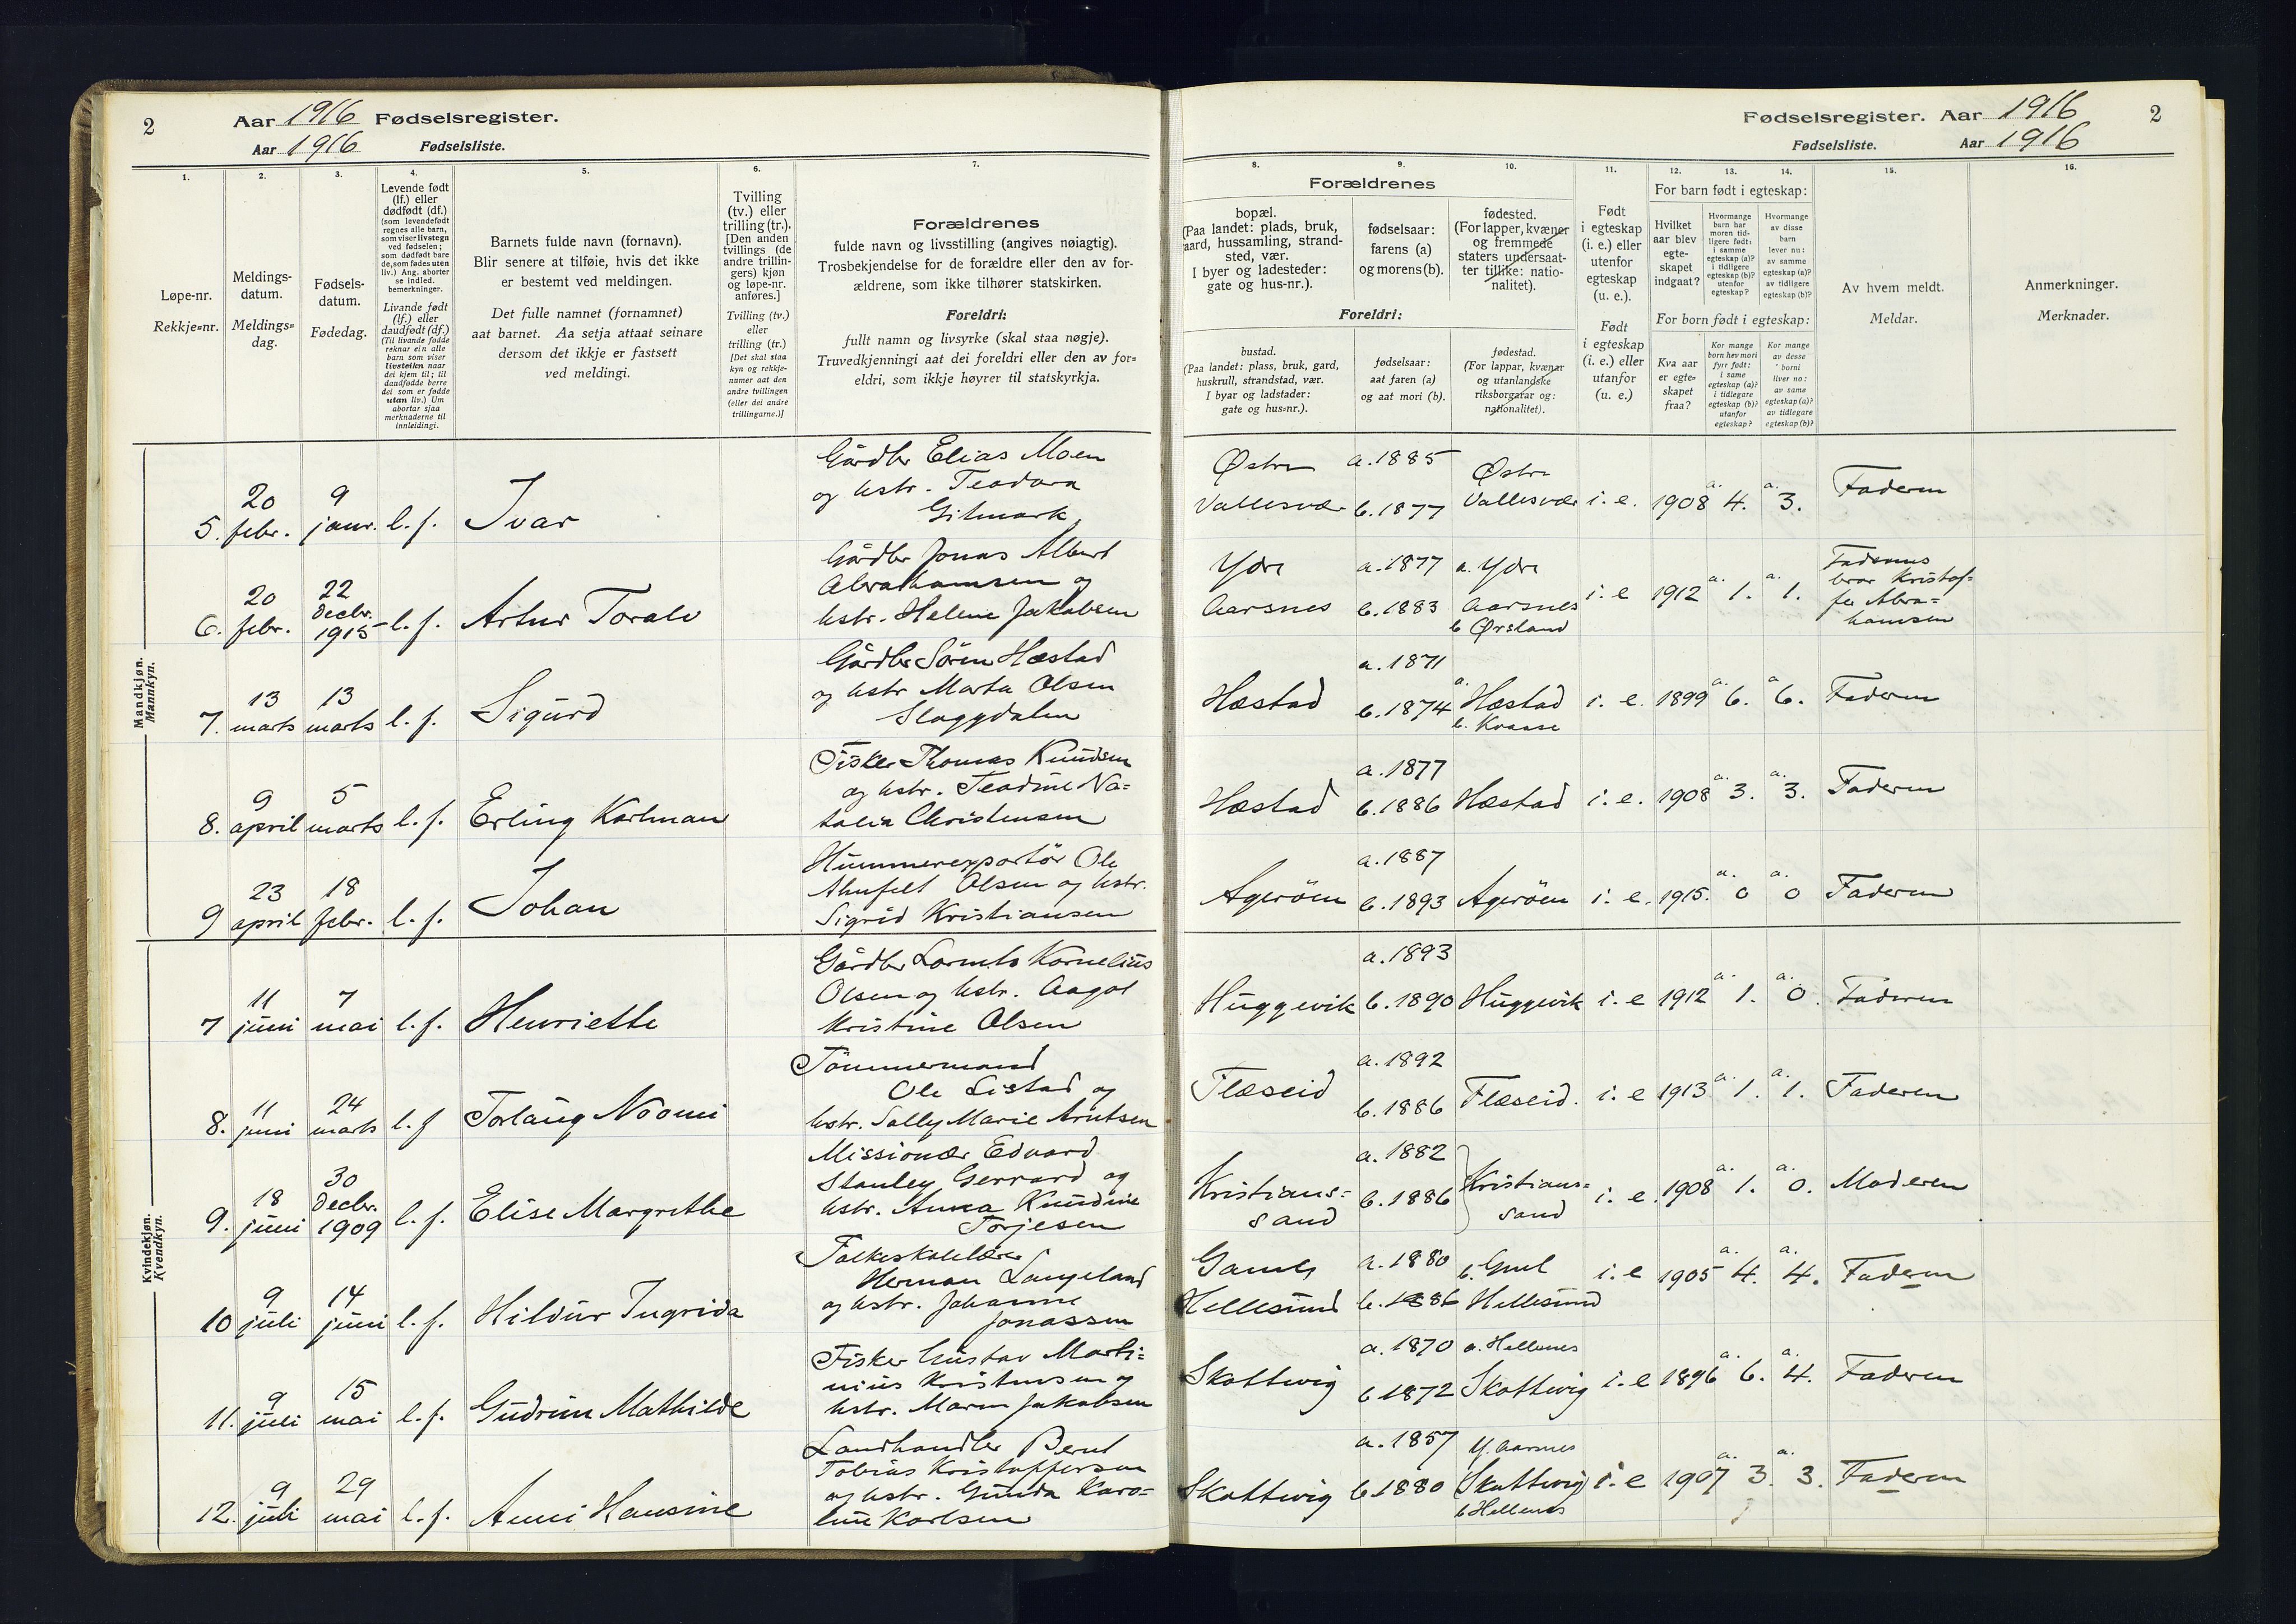 2 Aar 1916 Fødselsregister.
Aar 1916 Fødselsliste.
1.
Løpe-nr.
Rekkje=nr.
2.
Meldings-
datum.
Meldings=
dag.
3.
Fødsels-
datum.
Fødedag.
4.
Levende født
(lf.) eller
dødfødt (df.)
(som levendefødt
regnes alle barn,
som viser livstegn
ved fødselen;
som dødfødt bare
de, som fødes uten
liv.) Ang. aborter
se indled.
bemerkninger.
Livande født
(lf.) eller
daudfødt (df.)
(Til livande fødde
reknar ein alle
barn som viser
livsteikn naar
dei kjem til; til
daudfødde berre
dei som er fødde
utan liv.) Um
abortar sjaa
merknaderne til
innleidingi.
5.
Barnets fulde navn (fornavn).
Blir senere at tilføie, hvis det ikke
er bestemt ved meldingen.
Det fulle namnet (fornamnet)
aat barnet. Aa setja attaat seinare
dersom det ikkje er fastsett
ved meldingi.
6.
Tvilling
(tv.) eller
trilling (tr.).
[Den anden
tvillings (de
andre trillin-
gers) kjøn
og løpe-nr.
anføres.]
Tvilling (tv.)
eller
trilling (tr.)
[Det skal staa
kyn og rekkje-
numer aat den
andre tvillingen
(eller dei andre
trillingarne.)]
7.
Forældrenes
fulde navn og livsstilling (angives nøiagtig).
Trosbekjendelse for de forældre eller den av for-
ældrene, som ikke tilhører statskirken.
Foreldri:
fullt namn og livsyrke (skal staa nøgje).
Truvedkjenningi aat dei foreldri eller den av for=
eldri, som ikkje høyrer til statskyrkja.
Mandkjøn.
Mannkyn.
5. 20 febr. 9 janr. l. f. Ivar
Gårdbr Elias Moen
og hstr. Teodora
Gitmark
6. 20 febr. 22 decbr. 1915 l. f. Artur Toralv
Gårdbr Jonas Albert
Abrahamsen og
hstr. Helene Jakobsen
7. 13 marts 13 marts l. f. Sigurd
Gårdbr Sören Hæstad
og hstr Marta Olsen
Sloggdalen
8. 9 april 5 marts l. f. Erling Karlman
Fisker Thomas Knudsen
og hstr. Teodine Na=
talia Christensen
9 23 april 18 febr. l. f. Johan
Hummerexportör Ole
Olsen og hstr.
Sigrid Kristiansen
Kvindekjøn.
Kvendkyn.
7 11 juni 7 mai l. f. Henriette
Gårdbr Kornelius
Olsen og hstr. Aagot
Kristine Olsen
8. 11 juni 24 marts l. f Torlaug Noomi
Tömmermand
Ole Listad og
hstr. Sally Marie Arntsen
9. 18 juni 30 decbr. 1909 l. f. Elise Margrethe
Missionær Edvard
Stanley Gerrard og
hstr. Anna Knudine
Torjesen
10 9 juli 14 juni l. f. Hildur Ingrida
Folkeskolelærer
Herman Langeland
og hstr. Johanne
Jonassen
11. 9 juli 15 mai l. f. Gudrun Mathilde
Fisker Gustav Marti=
nius Kristensen og
hstr. Maren Jakobsen
12. 9 juli 29 mai l. f. Anni Hansine
Landhandler Bernt
Tobias Kristoffersen
og hstr. Gunda Karo=
line Karlsen
Fødselsregister. Aar 1916 2
Fødselsliste. Aar 1916
8.
Forældrenes
bopæl.
(Paa landet: plads, bruk,
gaard, hussamling, strand-
sted, vær.
I byer og ladesteder:
gate og hus-nr.).
Foreldri:
bustad.
(Paa landet: plass, bruk, gard,
huskrull, strandstad, vær.
I byar og ladstader:
gate og hus=nr.).
9.
fødselsaar:
farens (a)
og morens (b).
fødselsaar:
aat faren (a)
og aat mori (b).
10.
fødested.
(For lapper, kvæner
og fremmede
staters undersaat-
ter tillike: natio-
nalitet).
fødestad.
(For lappar, kvænar
og utanlandske
riksborgarar og:
nationalitet).
11.
Født
i egteskap
(i. e.) eller
utenfor
egteskap
(u. e.).
Født
i egteskap
(i. e.) eller
utanfor
(u. e.)
12. 13. 14.
For barn født i egteskap:
Hvilket
aar blev
egte-
skapet
indgaat?
Hvormange
barn har
moren tid-
ligere født:
i samme
egteskap (a)?
i tidligere
egteskap (b)?
utenfor
egteskap?
Hvormange
av disse
barn
lever nu:
av samme
egteskap (a)?
av tidligere
egteskap (b)?
For born født i egteskap:
Kva aar
er egte=
skapet
fraa?
Kor mange
born hev mori
fyrr født:
i same
egteskap (a)?
i tidlegare
egteskap (b)?
utanfor
egteskap?
Kor mange
av desse
borni
liver no:
av same
egteskap (a)?
av tidlegare
egteskap (b)?
15.
Av hvem meldt.
Meldar.
16.
Anmerkninger.
Merknader.
Østre Vallesvær a. 1885 b. 1877 Østre Vallesvær i. e. 1908 a. 4. a. 3. Faderen
Ydre Aarsnes a. 1877 b. 1883 a. Ydre Aarsnes b Ørsland i. e 1912 a. 1. a. 1. Faderens
bror Kristof=
fer Abra=
hamsen
Hæstad a. 1871 b. 1874 a. Hæstad b. Kvaase i. e. 1899 a. 6. a 6. Faderen
Hæstad a. 1877 b. 1886 Hæstad i. e. 1908 a. 3. a. 3. Faderen
Ageröen a. 1887 b. 1893 Ageröen i. e. 1915. a. 0 a. 0 Faderen
Huggevik a. 1893 b. 1890 Huggevik i. e 1912 a. 1. a. 0. Faderen
Flæseid a. 1892 b. 1886 Flæseid. i. e 1913 a. 1. a. 1. Faderen
Kristians=
sand a. 1882 b. 1886 Kristians=
sand i. e. 1908 a. 1. a. 0. Moderen
Hellesund a. 1880 b. 1886 Hellesund i. e 1905 a. 4. a. 4. Faderen
Skottevig a. 1870 b 1872 a. Hellenes Skottevig i. e 1896 a. 6. a. 4. Faderen
Skottevig a. 1857 b 1880 Y. Aarsnes Skottevig b Hellenes i. e 1907 a. 3. a. 3. Faderen